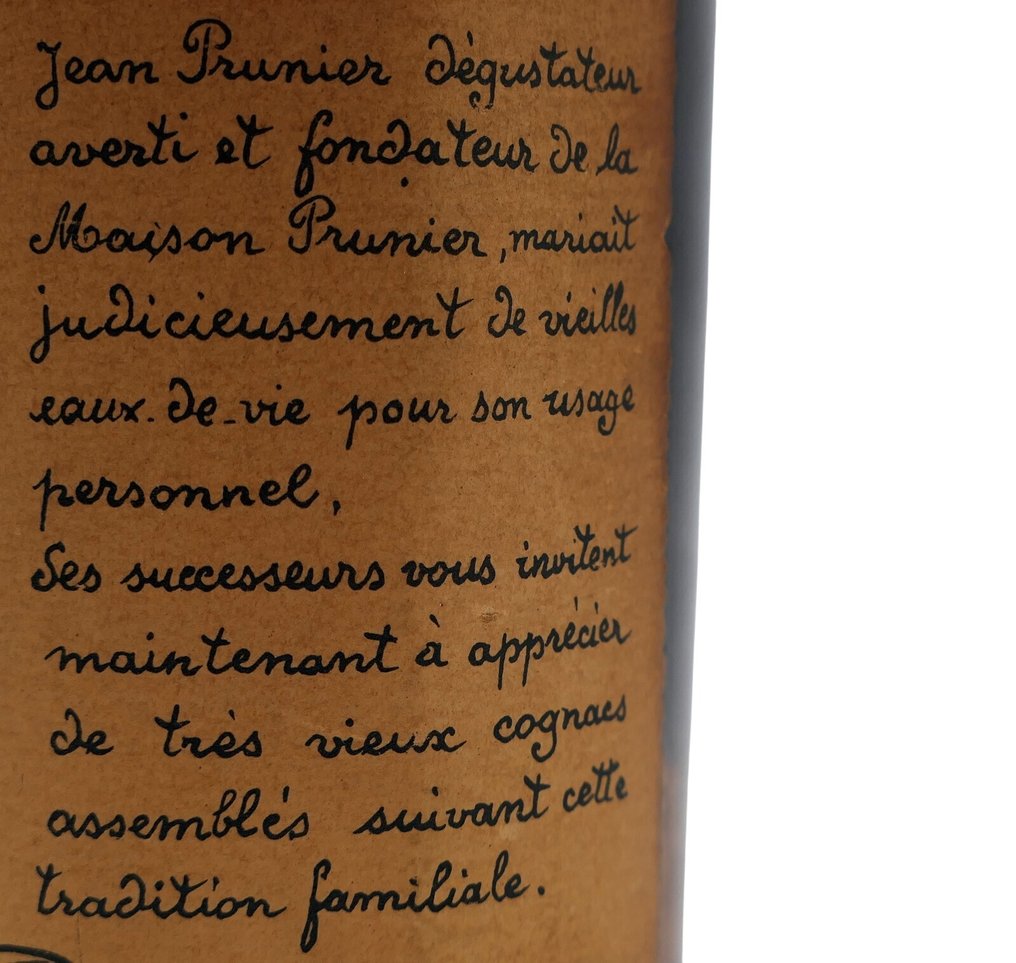 Jean Prunier dégustateur
averti et fondateur de la
Maison Prunier, mariait
judicieusement de vieilles
eaux-de-vie pour son usage
personnel,
Ses successeurs vous invitent
maintenant à apprécier
de très vieux cognacs
assemblés suivant cette
tradition familiale.